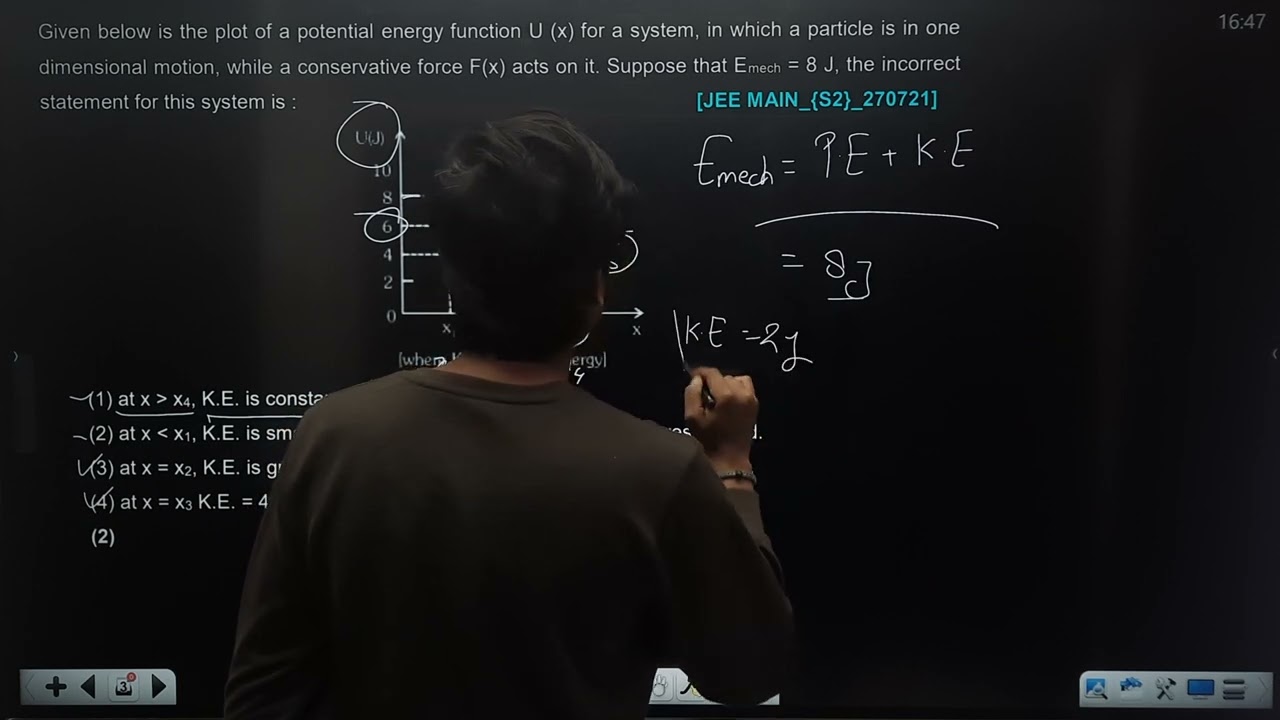 16:47
Given below is the plot of a potential energy function U (x) for a system, in which a particle is in one
dimensional motion, while a conservative force F(x) acts on it. Suppose that Emech = 8 J, the incorrect
statement for this system is :
[JEE MAIN_{S2}_270721]
U(J)
10
8
6
4
2
0
x
Emech = P.E + K.E
= 8J
K.E = 2J
(1) at x > x4, K.E. is
(2) at x < x1, K.E. is
(3) at x = x2, K.E. is
(4) at x = x3 K.E. = 4
(2)
3